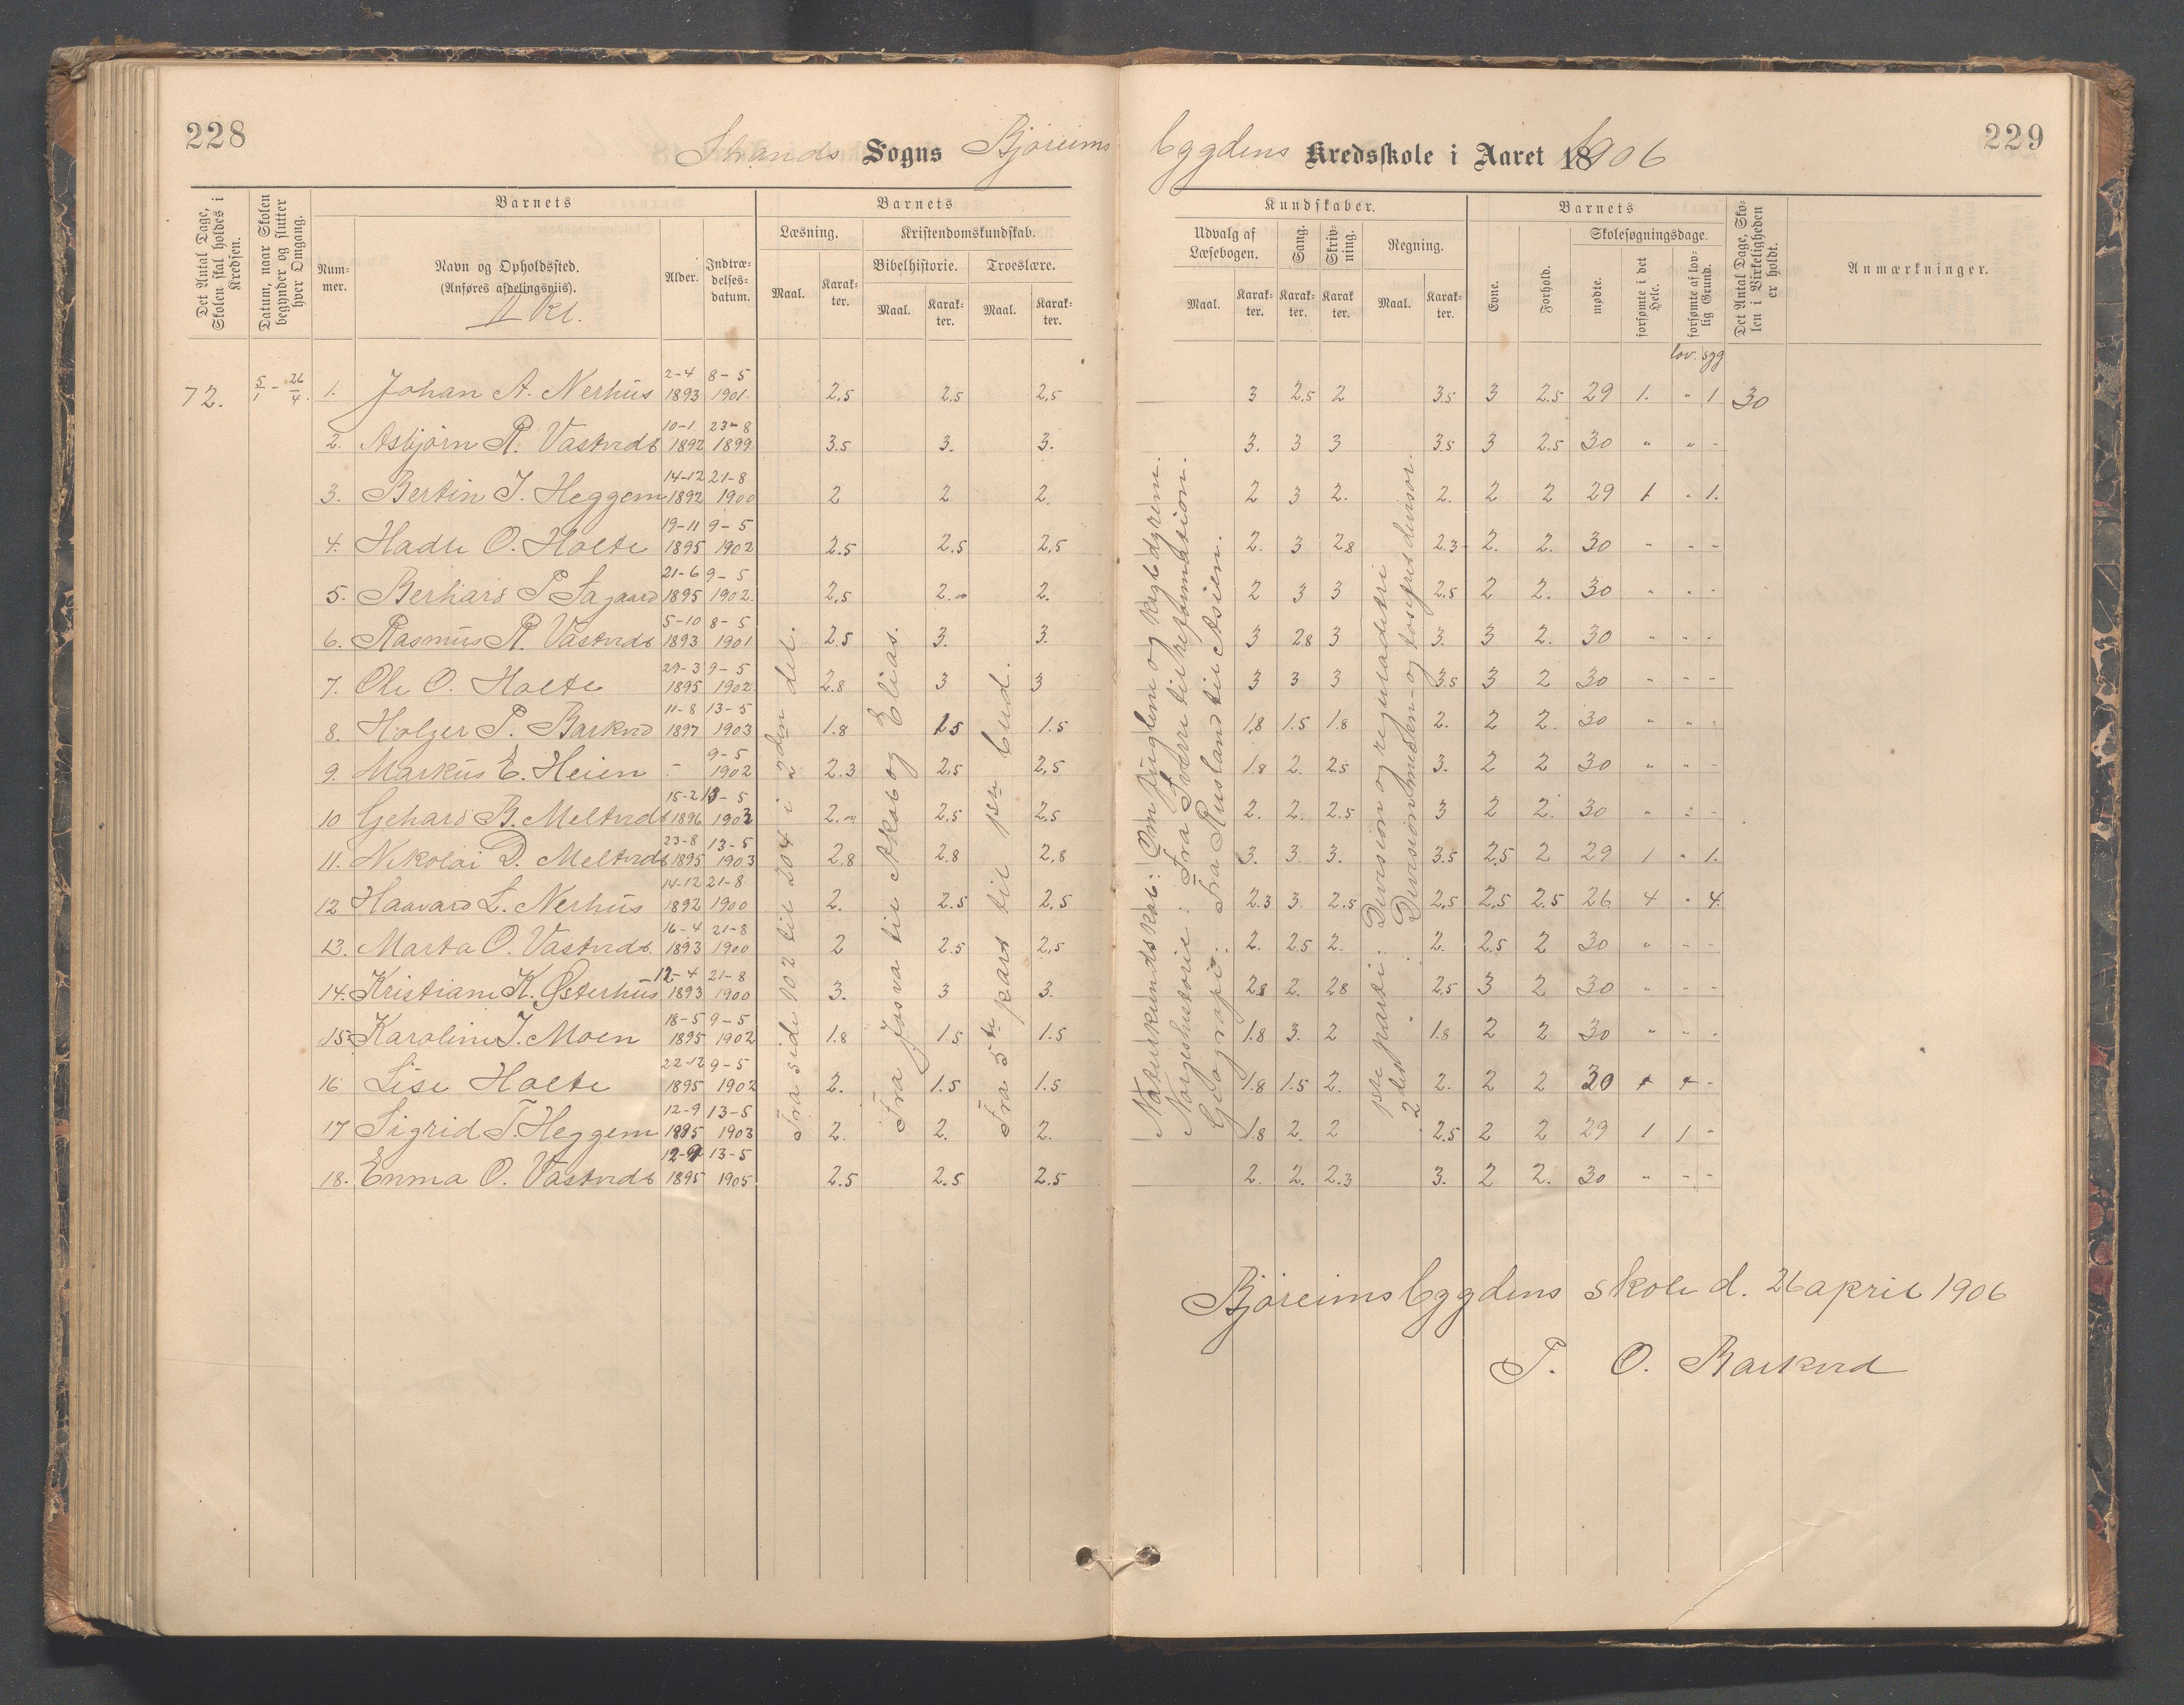 228
Strands Sogns Bjøreims
bygdens Kredsskole i Aaret 1906
229
Det Antal Dage, Skolen skal holdes i Kredsen.
Datum, naar Skolen begynder og slutter hver Omgang.
Barnets
Nummer.
Navn og Opholdssted.
(Anføres afdelingsviis).
Kl.
Alder.
Indtrædelsesdatum.
Barnets
Læsning.
Maal.
Karakter.
Kristendomskundskab.
Bibelhistorie.
Maal.
Karakter.
Troeslære.
Maal.
Karakter.
Kundskaber.
Udvalg af Læsebogen.
Maal.
Karakter.
Sang.
Karakter.
Skrivning.
Karakter.
Regning.
Maal.
Karakter.
Barnets
Evne.
Forhold.
Skolesøgningsdage.
mødte.
forsømte i det Hele.
forsømte af lovlig Grund.
lov. syg
Det Antal Dage, Skolen i Virkeligheden er holdt.
Anmærkninger.
72. 5/1 - 26/4. 1. Johan A. Nerhus 2-4 1893 8-5 1901. 2.5 2.5 2.5 3 2.5 2 3.5 3 2.5 29 1. " 1 30
2. Asbjørn R. Vastvedt 10-1. 1892 23-8 1899 3.5 3. 3. 3. 3 3 3.5 3 2.5 30 " " -
3. Bertin T. Heggem 14-12 1892 21-8 1900 2 2 2. 2 3 2. 2. 2 2 29 1 " 1.
4. Hadle O. Holte 19-11 1895 9-5 1902 2.5 2.5 2.5 2. 3 2.8 2.3 2. 2. 30 " - -
5. Berhard P Sagaard 21-6 1895 9-5 1902. 2.5 2. 2. 2 3 3 2.5 2 2. 30 " " -
6. Rasmus R. Vastvedt 5-10 1893 8-5 1901 2.5 3. 3. 3 2.8 3 3. 3 2. 30 " - -
7. Ole O. Holte 29-3 1895 9-5 1902 2.8 3 3 3 3 3 3.5 3 2 30 - - -
8. Holger P. Barkved 11-8 1897 13-5 1903 1.8 1.5 1.5 1.8 1.5 1.8 2. 2 2. 30 " " -
9. Markus E. Heien - 9-5 1902 2.3 2.5 2.5 1.8 2. 2.5 3. 2 2 30 " " -
10 Gehard B. Meltvedt 15-2 1896 13-5 1903 2. 2.5 2.5 2. 2. 2.5 3 2 2. 30 " : -
11. Nikolai D. Meltvedt 23-8 1895 13-5 1903 2.8 2.8 2.8 3. 3. 3. 3.5 2.5 2 29 1 " 1.
12 Haavard L. Nerhus 14-12 1892 21-8 1900 2. 2.5 2.5 2.3 3. 2.5 2.5 2.5 2.5 26 4 " 4
13. Marta O. Vastvedt. 16-4 1893 21-8 1900 2 2.5 2.5 2. 2.5 2. 2. 2.5 2 30 " - -
14. Kristiane K. Østerhus 12-4 1893 21-8 1900 3. 3 3. 2.8 2. 2.8 2.5 3 2 30 " - -
15. Karoline J. Moen 18-5 1895 9-5 1902 1.8 1.5 1.5 1.8 3. 2 1.8 2 2 30 " - -
16 Lise Holte 22-12 1895 9-5 1902 2. 1.5 1.5 1.8 1.5 2. 2. 2 2 30 -
17 Sigrid T. Heggem 12-9 1895 13-5 1903 2. 2. 2. 1.8 2. 2 2.5 2 2 29 1 1 -
18. Emma O. Vastvedt 12-9 1895 13-5 1905 2.5 2.5 2.5 2. 2. 2.3 3. 2 2. 30 " - -
Fra side 102 til 204 i 2den del.
Fra Josva til Akab og Elias.
Fra 5te part til 1ste bud.
Naturkundskab: Om fuglene og krybdyrene.
Norgeshistorie: Fra Sverre til reformasionen.
Geografi: Fra Rusland til Asien.
1ste parti: Division og reguladetri
2det " : Division med en- og tosifret divisor.
Bjøreimsbygdens skole d. 26 april 1906
P. O. Barkved